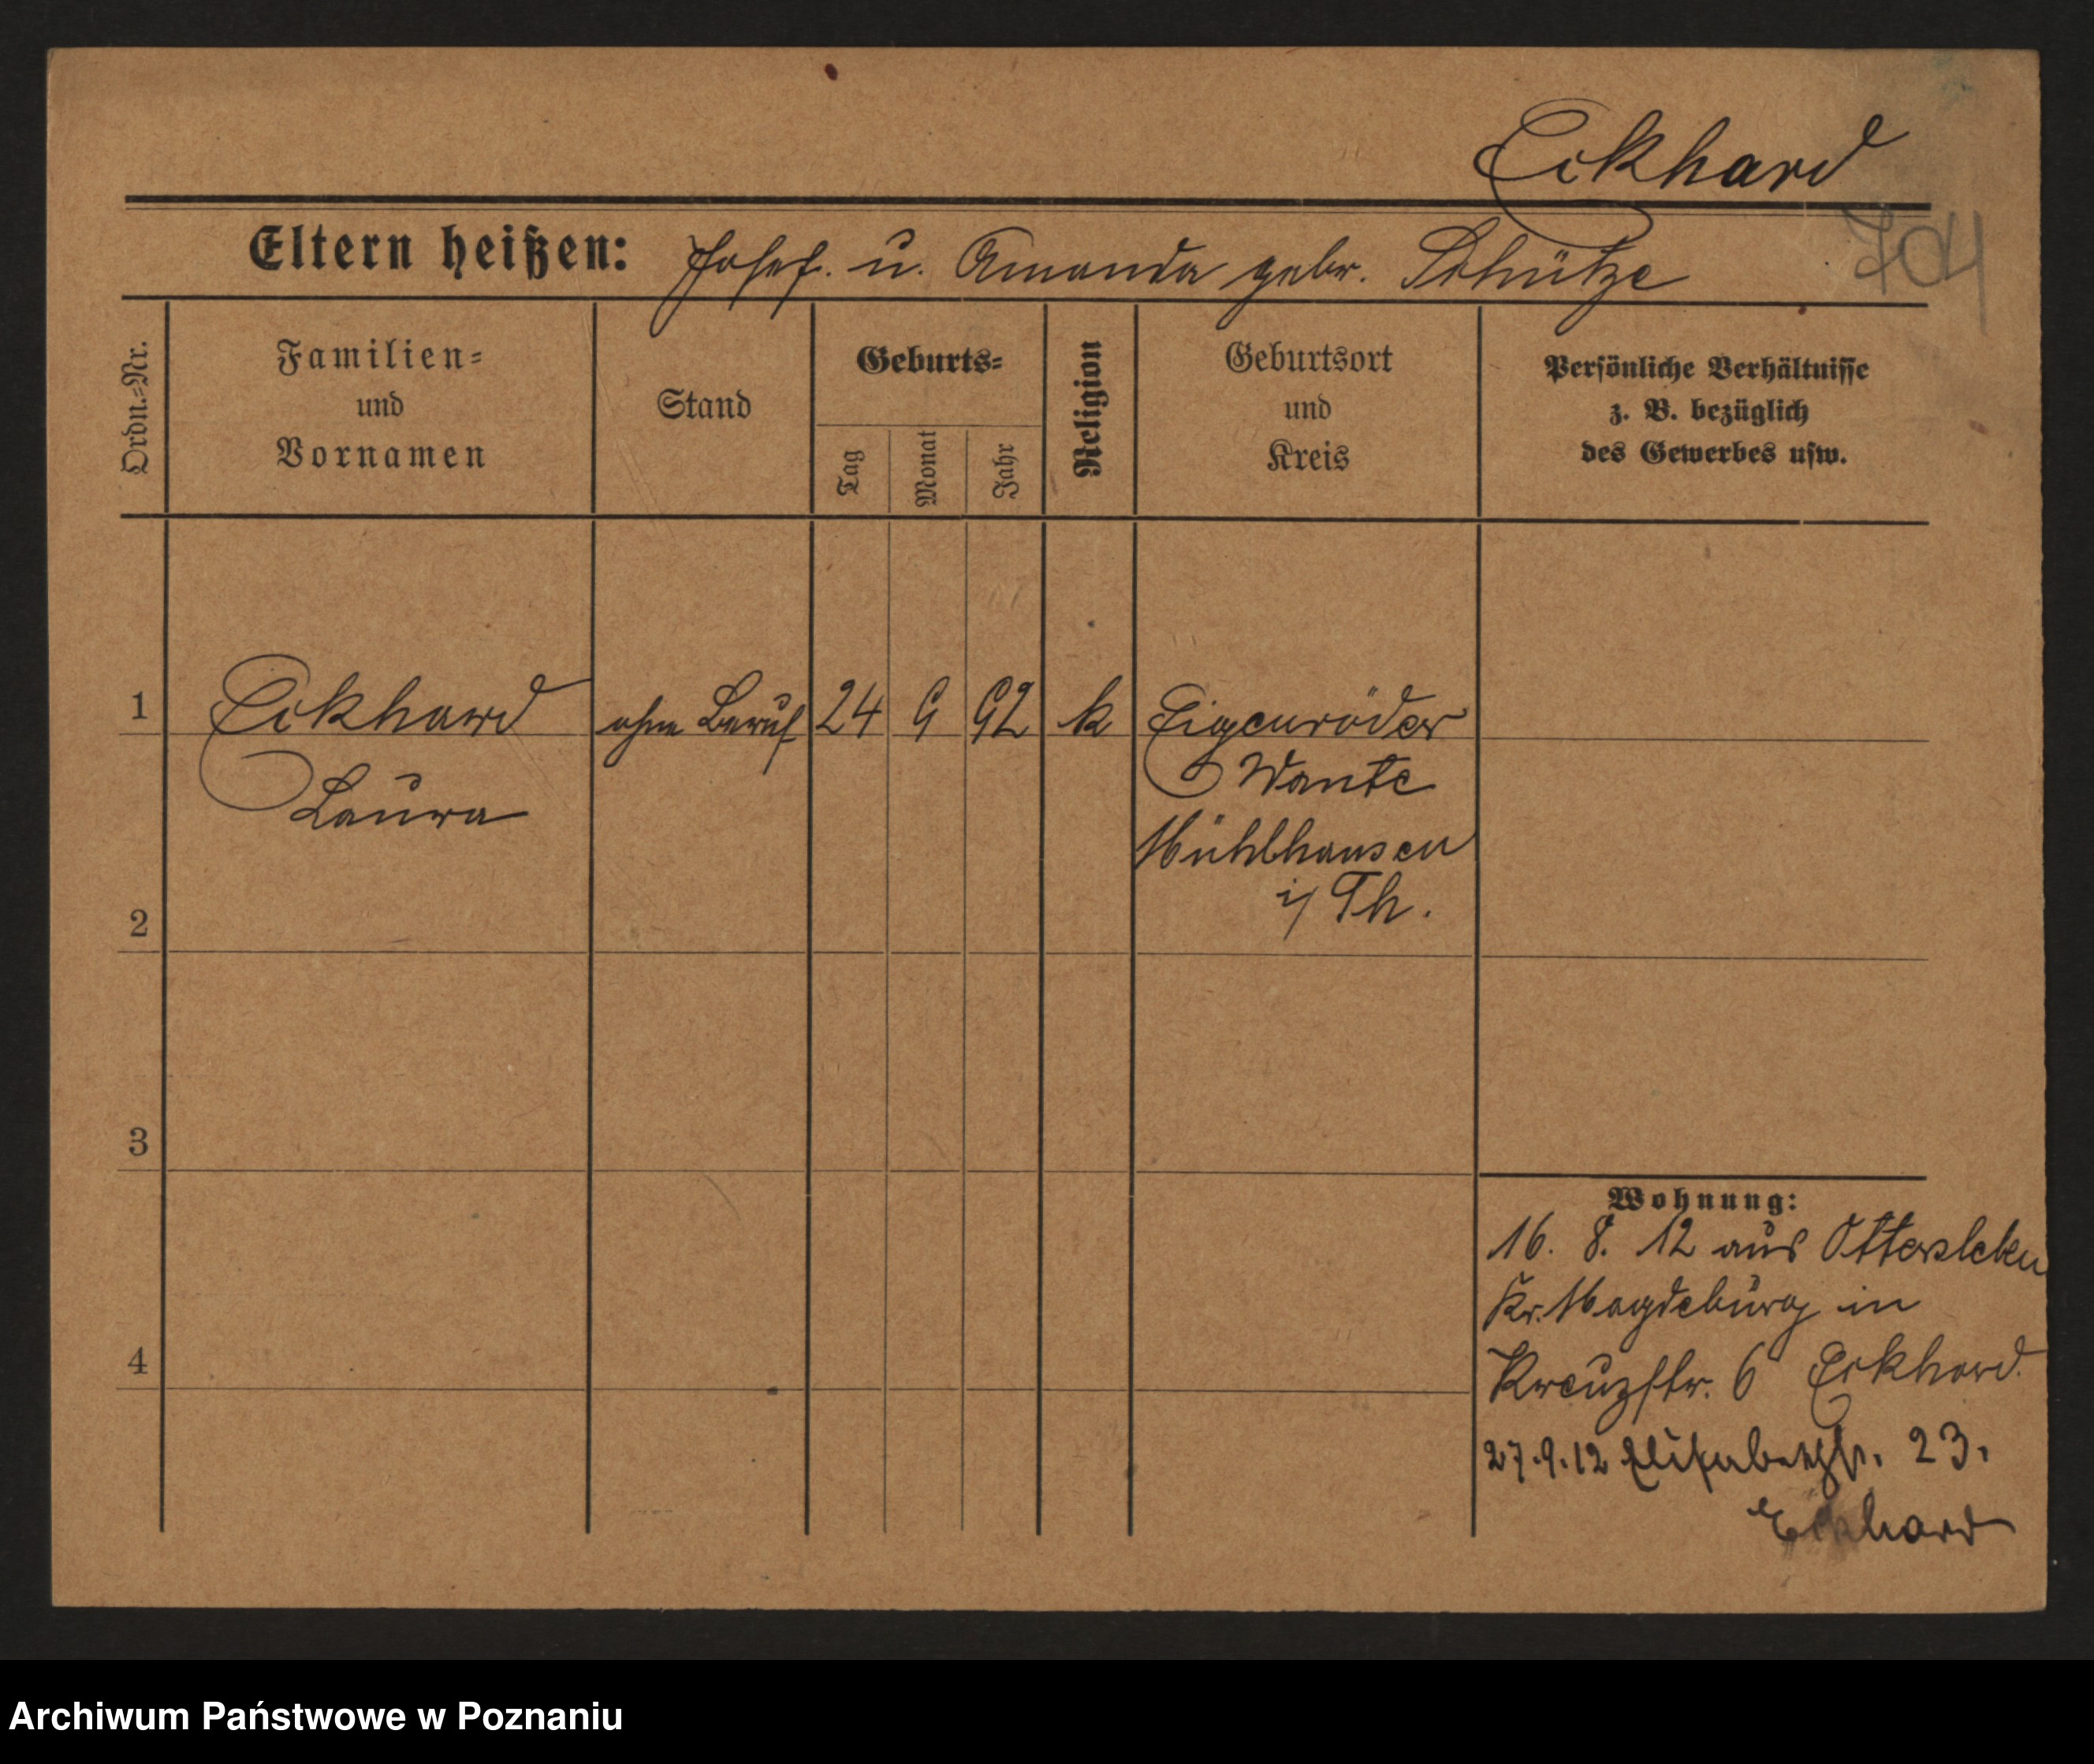 Eckhard
704
Eltern heißen: Josef. u. Amanda gebr. Schütze
Ordn.=Nr.
Familien=
und
Vornamen
Stand
Geburts=
Tag
Monat
Jahr
Religion
Geburtsort
und
Kreis
Persönliche Verhältnisse
z. B. bezüglich
des Gewerbes usw.
1 Eckhard ohne Beruf 24 9 92 k Eigenröder
Wante
Laura
Mühlhausen
i/ Th.
2
3
Wohnung:
16. 8. 12 aus Ottersleben
Kr. Magdeburg in
4
Kreuzstr. 6 Eckhard.
27.9.12 Elisabethstr. 23.
Eckhard
Archiwum Państwowe w Poznaniu